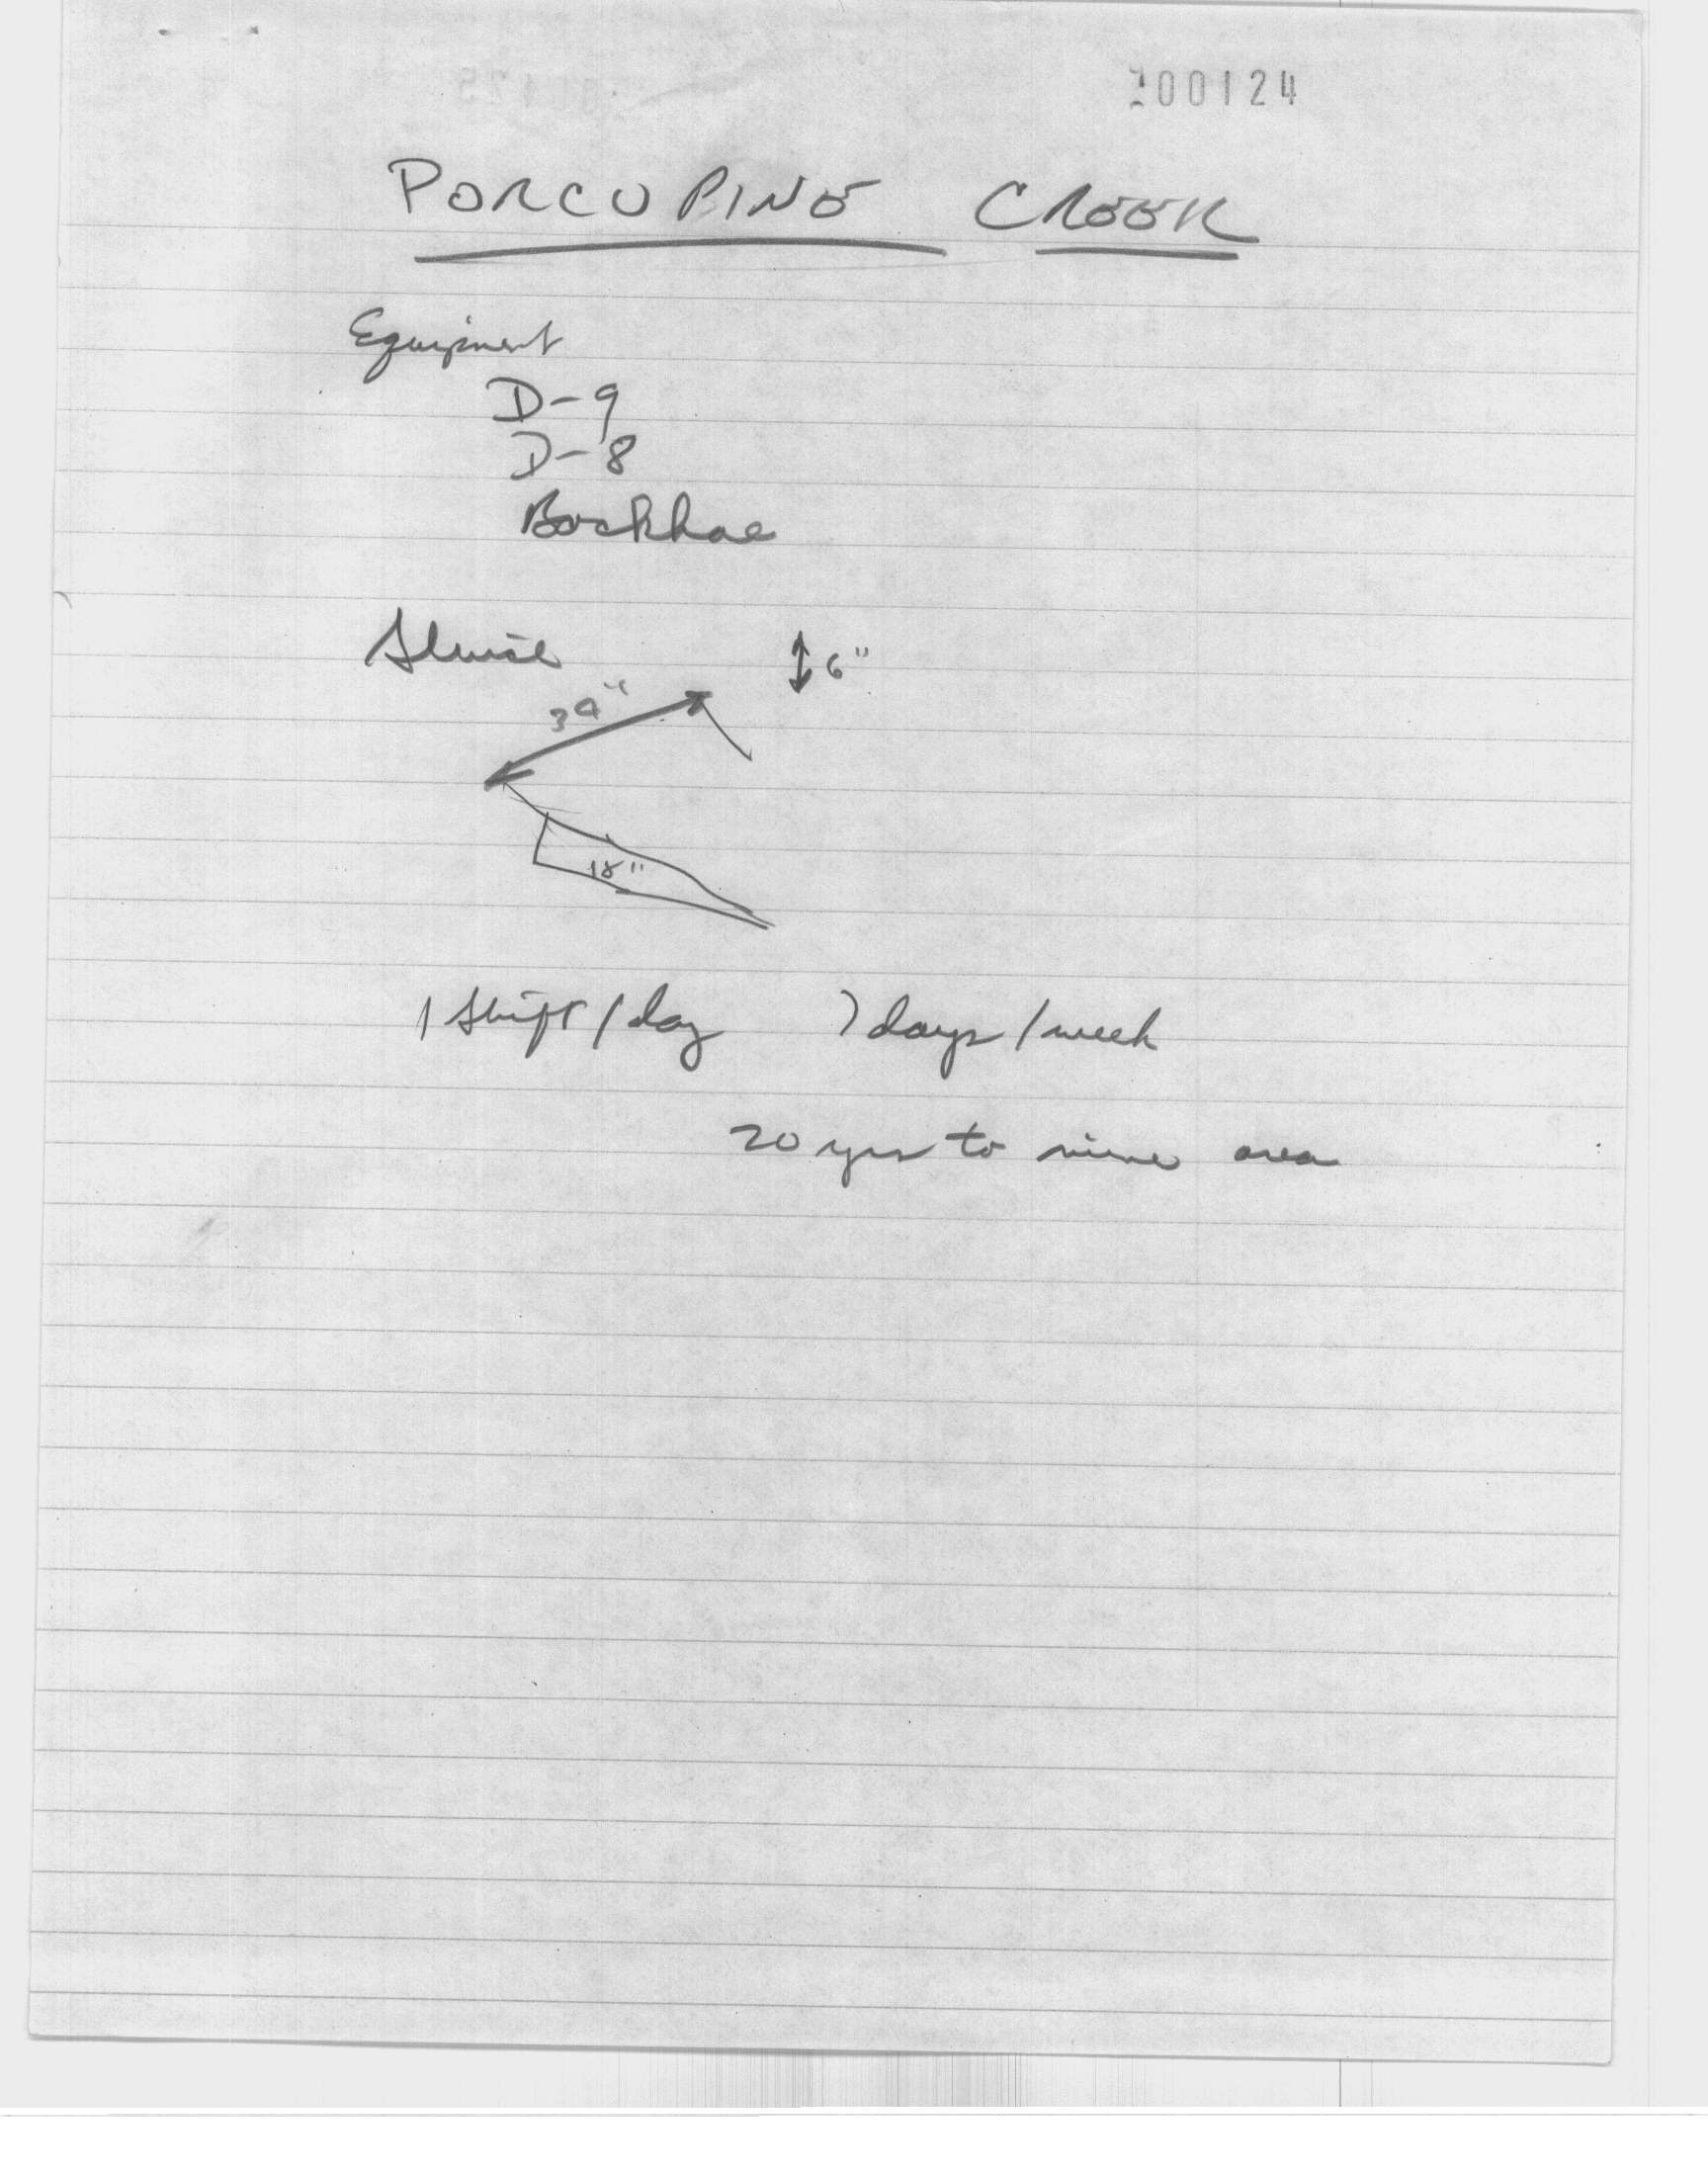 200124
PORCUPINE CREEK
Equipment
D-9
D-8
Backhoe
Sluice
6"
18"
1 shift/day 7 days/week
20 yrs to mine area